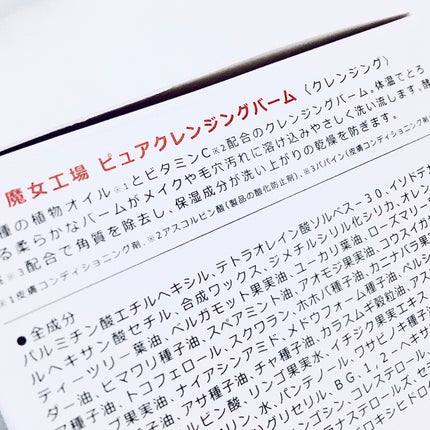 魔女工場 ピュアクレンジングバーム (クレンジング)
種の植物オイル※1とビタミンC※2配合のクレンジングバーム。体温でとろ
る柔らかなバームがメイクや毛穴汚れに溶け込みやさしく洗い流します。酵
※3配合で角質を除去し、保湿成分が洗い上がりの乾燥を防ぎます。
※1皮膚コンディショニング剤、※2アスコルビン酸(製品の酸化防止剤)、※3パパイン(皮膚コンディショニング剤)
●全成分
パルミチン酸エチルヘキシル、テトラオレイン酸ソルベス-30、イソドデ
ルヘキサン酸セチル、合成ワックス、ジメチルシリル化シリカ、オレン
ティーツリー葉油、ベルガモット果実油、ユーカリ葉油、ローズマリー
ダー油、ヒマワリ種子油、スペアミント油、アオモジ果実油、コウスイガ
トコフェロール、スクワラン、ホホバ種子油、カニナバラ果
ブ果実油、ナイアシンアミド、メドウフォーム種子油、ベルシ
ア種子油、アサ種子油、チャ種子油、カラスムギ穀粒油、アス
ルビン酸、リンゴ果実水、イチジク果実エキス
リン、水、パンテノール、ワサビノキ種子
リグリセリル、BG、1,2-ヘキサ
ンゴシン、コレステロール、
ラナステロールズ、セ